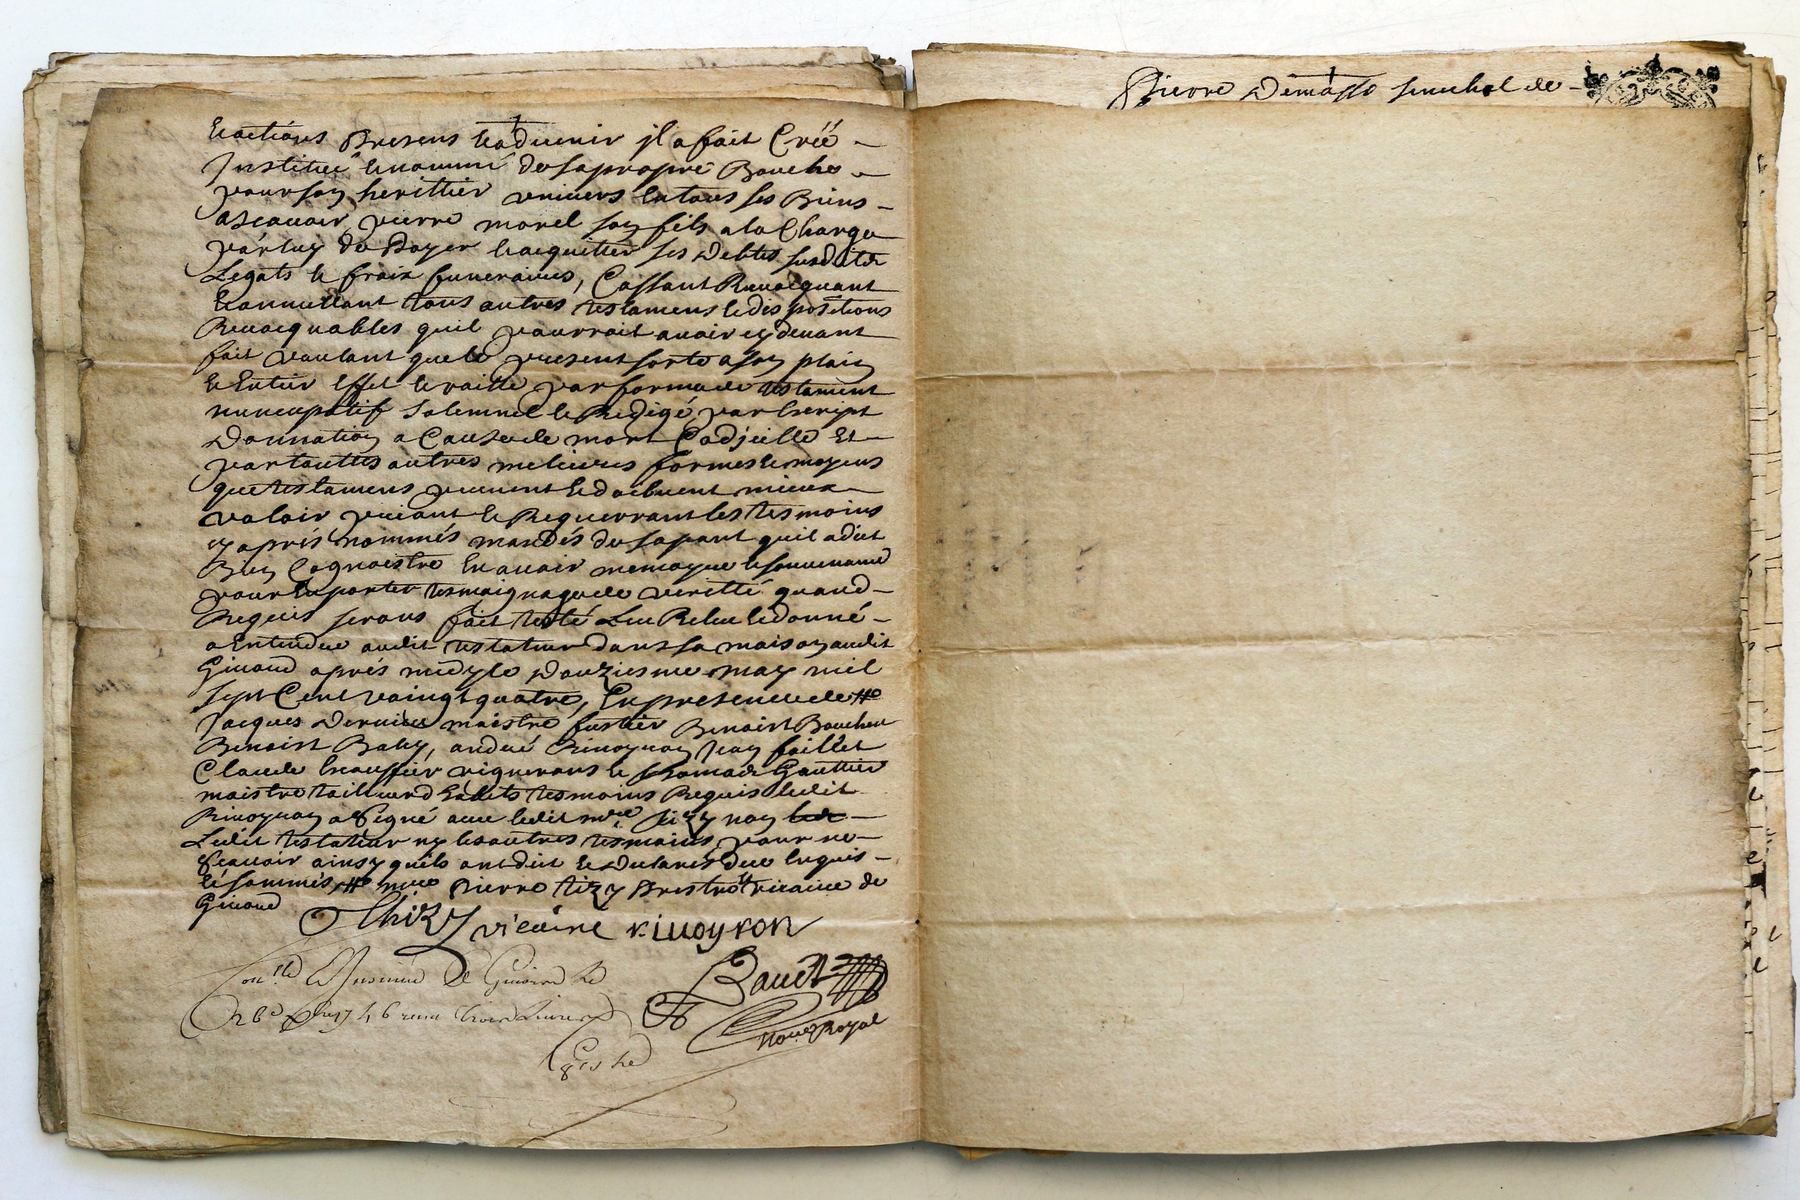 Et actions presens et advenir il a fait Créé
Institué et nommé de sa propre Bouche
pour son herittier univers en tous ses Biens
ascavoir pierre morel son fils a la Charge
par luy de Payer et acquitter ses Debtes susdits
Legats et fraix funeraires, Cassant Revocquant
Et annullant tous autres testamens et dispositions
Revocquables quil pourroit avoir cy devant
fait voulant que le present sorte a son plain
et Entier effet et vaille par forme de testament
nuncupatif solemnel et Redigé par Escript
Donnation a Cause de mort Codicille Et
par touttes autres melieures formes et moyens
que testamens peuvent et doibvent mieux
valoir priant et Requerrant les tesmoins
cy aprés nommés mandés de sa part quil a dict
Bien Cognoistre En avoir memoyre et souvenance
pour En porter tesmoignage de veritté quand
Requis serons fait testé Leu Releu et donné
a Entendre audit testateur dans sa maison audit
Givord aprés midy le Douziesme may mil
sept Cent vaingt quatre, En presence de
Jacques maistre fustier Benoist
Benoist andré Rivoyron Jean
Claude vignerons et Gauttier
maistre tailleurd habits tesmoins Requis ledit
Rivoyron a signé avec ledit mre tizy non
Ledit testateur ny les autres tesmoins pour ne
scavoir ainsy quils ont dict et Declaré de ce Enquis
et sommés mre Pierre tizy Prestre et vicaire de
Givord
thizy vicaire rivoyron
de Givord le
Notre Royal
Pierre Demasso senechal de